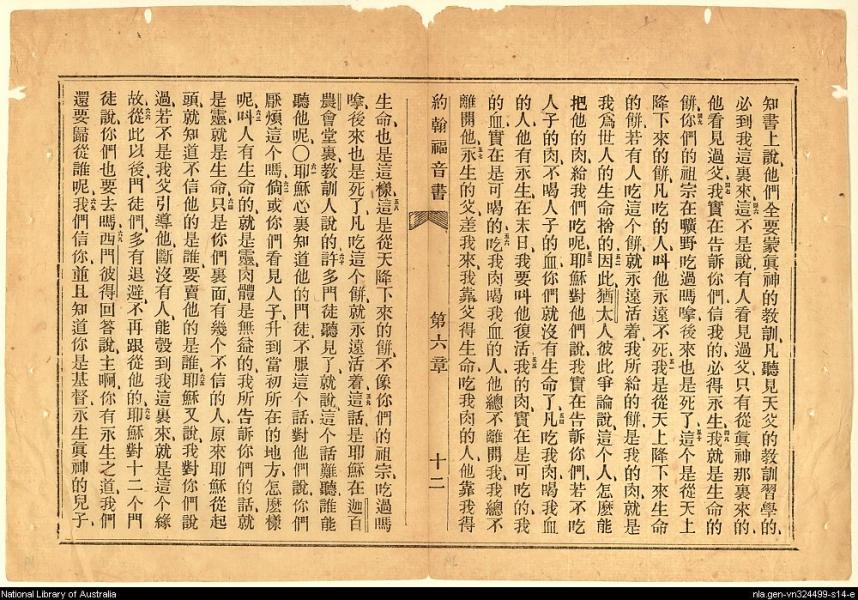 知書上說他們全要蒙眞神的教訓凡聽見天父的教訓習學的
必到我這裏來這不是說有人看見過父只有從眞神那裏來的
他看見過父我實在告訴你們信我的必得永生我就是生命的
餅你們的祖宗在曠野吃過嗎嗱後來也是死了這個是從天上
降下來的餅凡吃的人叫他永遠不死我是從天上降下來生命
的餅若有人吃這个餅就永遠活着我所給的餅是我的肉就是
我爲世人的生命捨的因此猶太人彼此爭論說這个人怎麽能
把他的肉給我們吃呢耶穌對他們說我實在告訴你們若不吃
人子的肉不喝人子的血你們就沒有生命了凡吃我肉喝我血
的人他有永生在末日我要叫他復活我的肉實在是可吃的我
的血實在是可喝的吃我肉喝我血的人他總不離開我我總不
離開他永生的父差我來我靠父得生命吃我肉的人他靠我得
約翰福音書 第六章 十二
生命也是這樣這是從天降下來的餅不像你們的祖宗吃過嗎
嗱後來也是死了凡吃這个餅就永遠活着這話是耶穌在迦百
農會堂裏教訓人說的許多門徒聽見了就說這个話難聽誰能
聽他呢〇耶穌心裏知道他的門徒不服這个話對他們說你們
厭煩這个嗎倘或你們看見人子升到當初所在的地方怎麽樣
呢叫人有生命的就是靈肉體是無益的我所告訴你們的話就
是靈就是生命只是你們裏面有幾个不信的人原來耶穌從起
頭就知道不信他的是誰要賣他的是誰耶穌又說我對你們說
過若不是我父引導他斷沒有人能彀到我這裏來就是這个緣
故從此以後門徒們多有退避不再跟從他的耶穌對十二个門
徒說你們也要去嗎西門彼得回答說主啊你有永生之道我們
還要歸從誰呢我們信你並且知道你是基督永生眞神的兒子
National Library of Australia
nla.gen-vn324499-s14-e